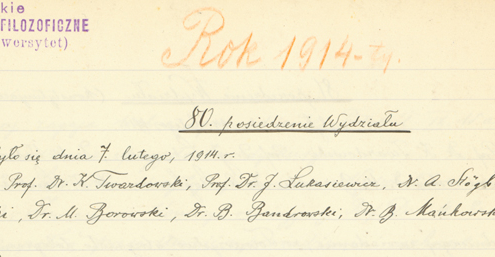 kie
FILOZOFICZNE
wersytet)
Rok 1914-ty.
80. posiedzenie Wydziału
yło się dnia 7. lutego, 1914.r.
Prof. Dr. K. Twardowski, Prof. Dr. J. Łukasiewicz, Dr. A. Stögb
i, Dr. M. Borowski, Dr. B. Bandrowski, Dr. B. Mańkowsk